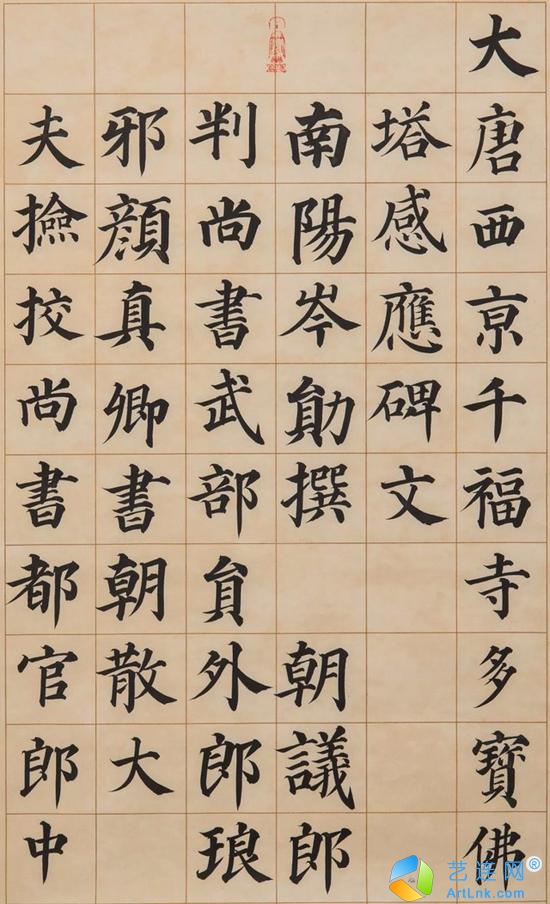 大唐西亰千福寺多寶佛
塔感應碑文
南陽岑勛撰 朝議郎
判尚書武部貟外郎琅
邪顔真卿書朝散大
夫撿挍尚書都官郎中
艺连网®
ArtLnk.com